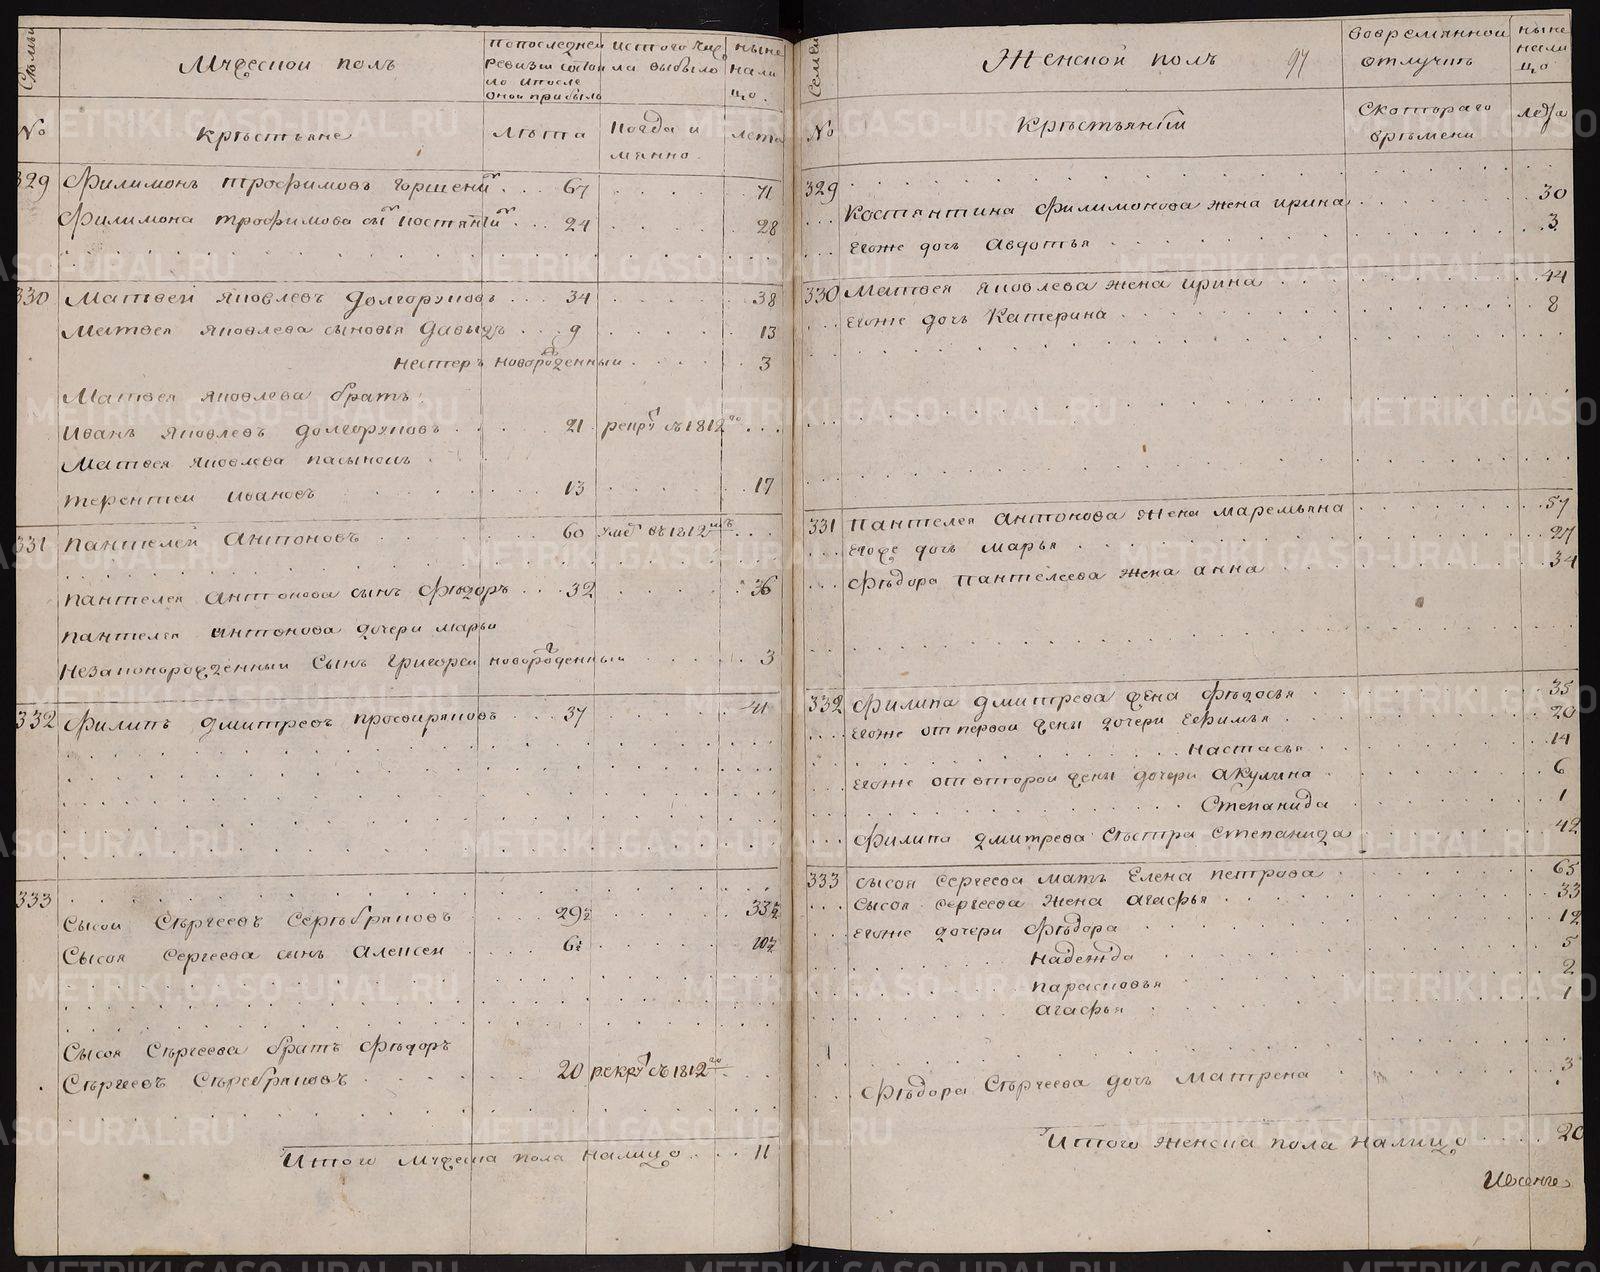 Семьи
Мужескои полъ
попоследней
ревизии состоя
ло ипосле
онои прибыло
истого чис
ла выбыло
ныне
нали
цо.
No
Крѣстьяне
Лѣта
Когда и
мянно.
лета
329 Филимонъ трофимовъ горшени . . . 67 71
Филимона трофимова сы костянти . . . 24 28
330 Матвеи яковлевъ долгоруковъ . . . 34 38
Матвея яковлева сыновья давыдъ . . . 9 13
нестеръ новорожденныи 3
Матвея яковлева братъ
Иванъ яковлевъ долгоруковъ . . . 21 рекру съ 1812го . . .
Матвея яковлева пасынокъ
терентеи ивановъ 13 17
331 пантелеи антоновъ 60 умѣ въ 1812мъ . . .
пантелея антонова сынъ фѣдоръ . . . 32 36
пантелея антонова дочери марьи
незаконорожденныи сынъ григореи новорожденныи 3
332 Филипъ дмитревъ просвиряковъ . . . 37 41
333
Сысои Сѣргеевъ Серѣбряковъ 29½ 33½
Сысоя сергеева сынъ алексеи 6½ 10½
Сысоя Сѣргеева братъ Фѣдоръ
Сѣргеевъ Сѣребряковъ 20 рекру съ 1812го
Итого мужеска пола налицо . . . 11
Семьи
Женскои полъ 97
вовремяннои
отлучкѣ
ныне
нали
цо
No
Крѣстьянки
Скотораго
врѣмени
лета
329
Костянтина филимонова жена ирина 30
егоже дочь авдотья 3
330 Матвея яковлева жена ирина 44
егоже дочь Катерина 8
331 пантелея антонова жена маремьяна 57
егоже дочь марья 27
Фѣдора пантелеева жена анна 34
332 Филипа дмитрева жена Фѣдосья 35
егоже отпервои жены дочери ефимья 20
настасья 14
егоже отвторои жены дочери акулина 6
Степанида 1
Филипа дмитрева Сѣстра Степанида 42
333 сысоя сергеева мать Елена петрова 65
сысоя сергеева жена агафья 33
егоже дочери Фѣдора 12
надежда 5
парасковья 2
агафья 1
Фѣдора Сѣргеева дочь матрена 3
Итого женска пола налицо 20
METRIKI.GASO-URAL.RU